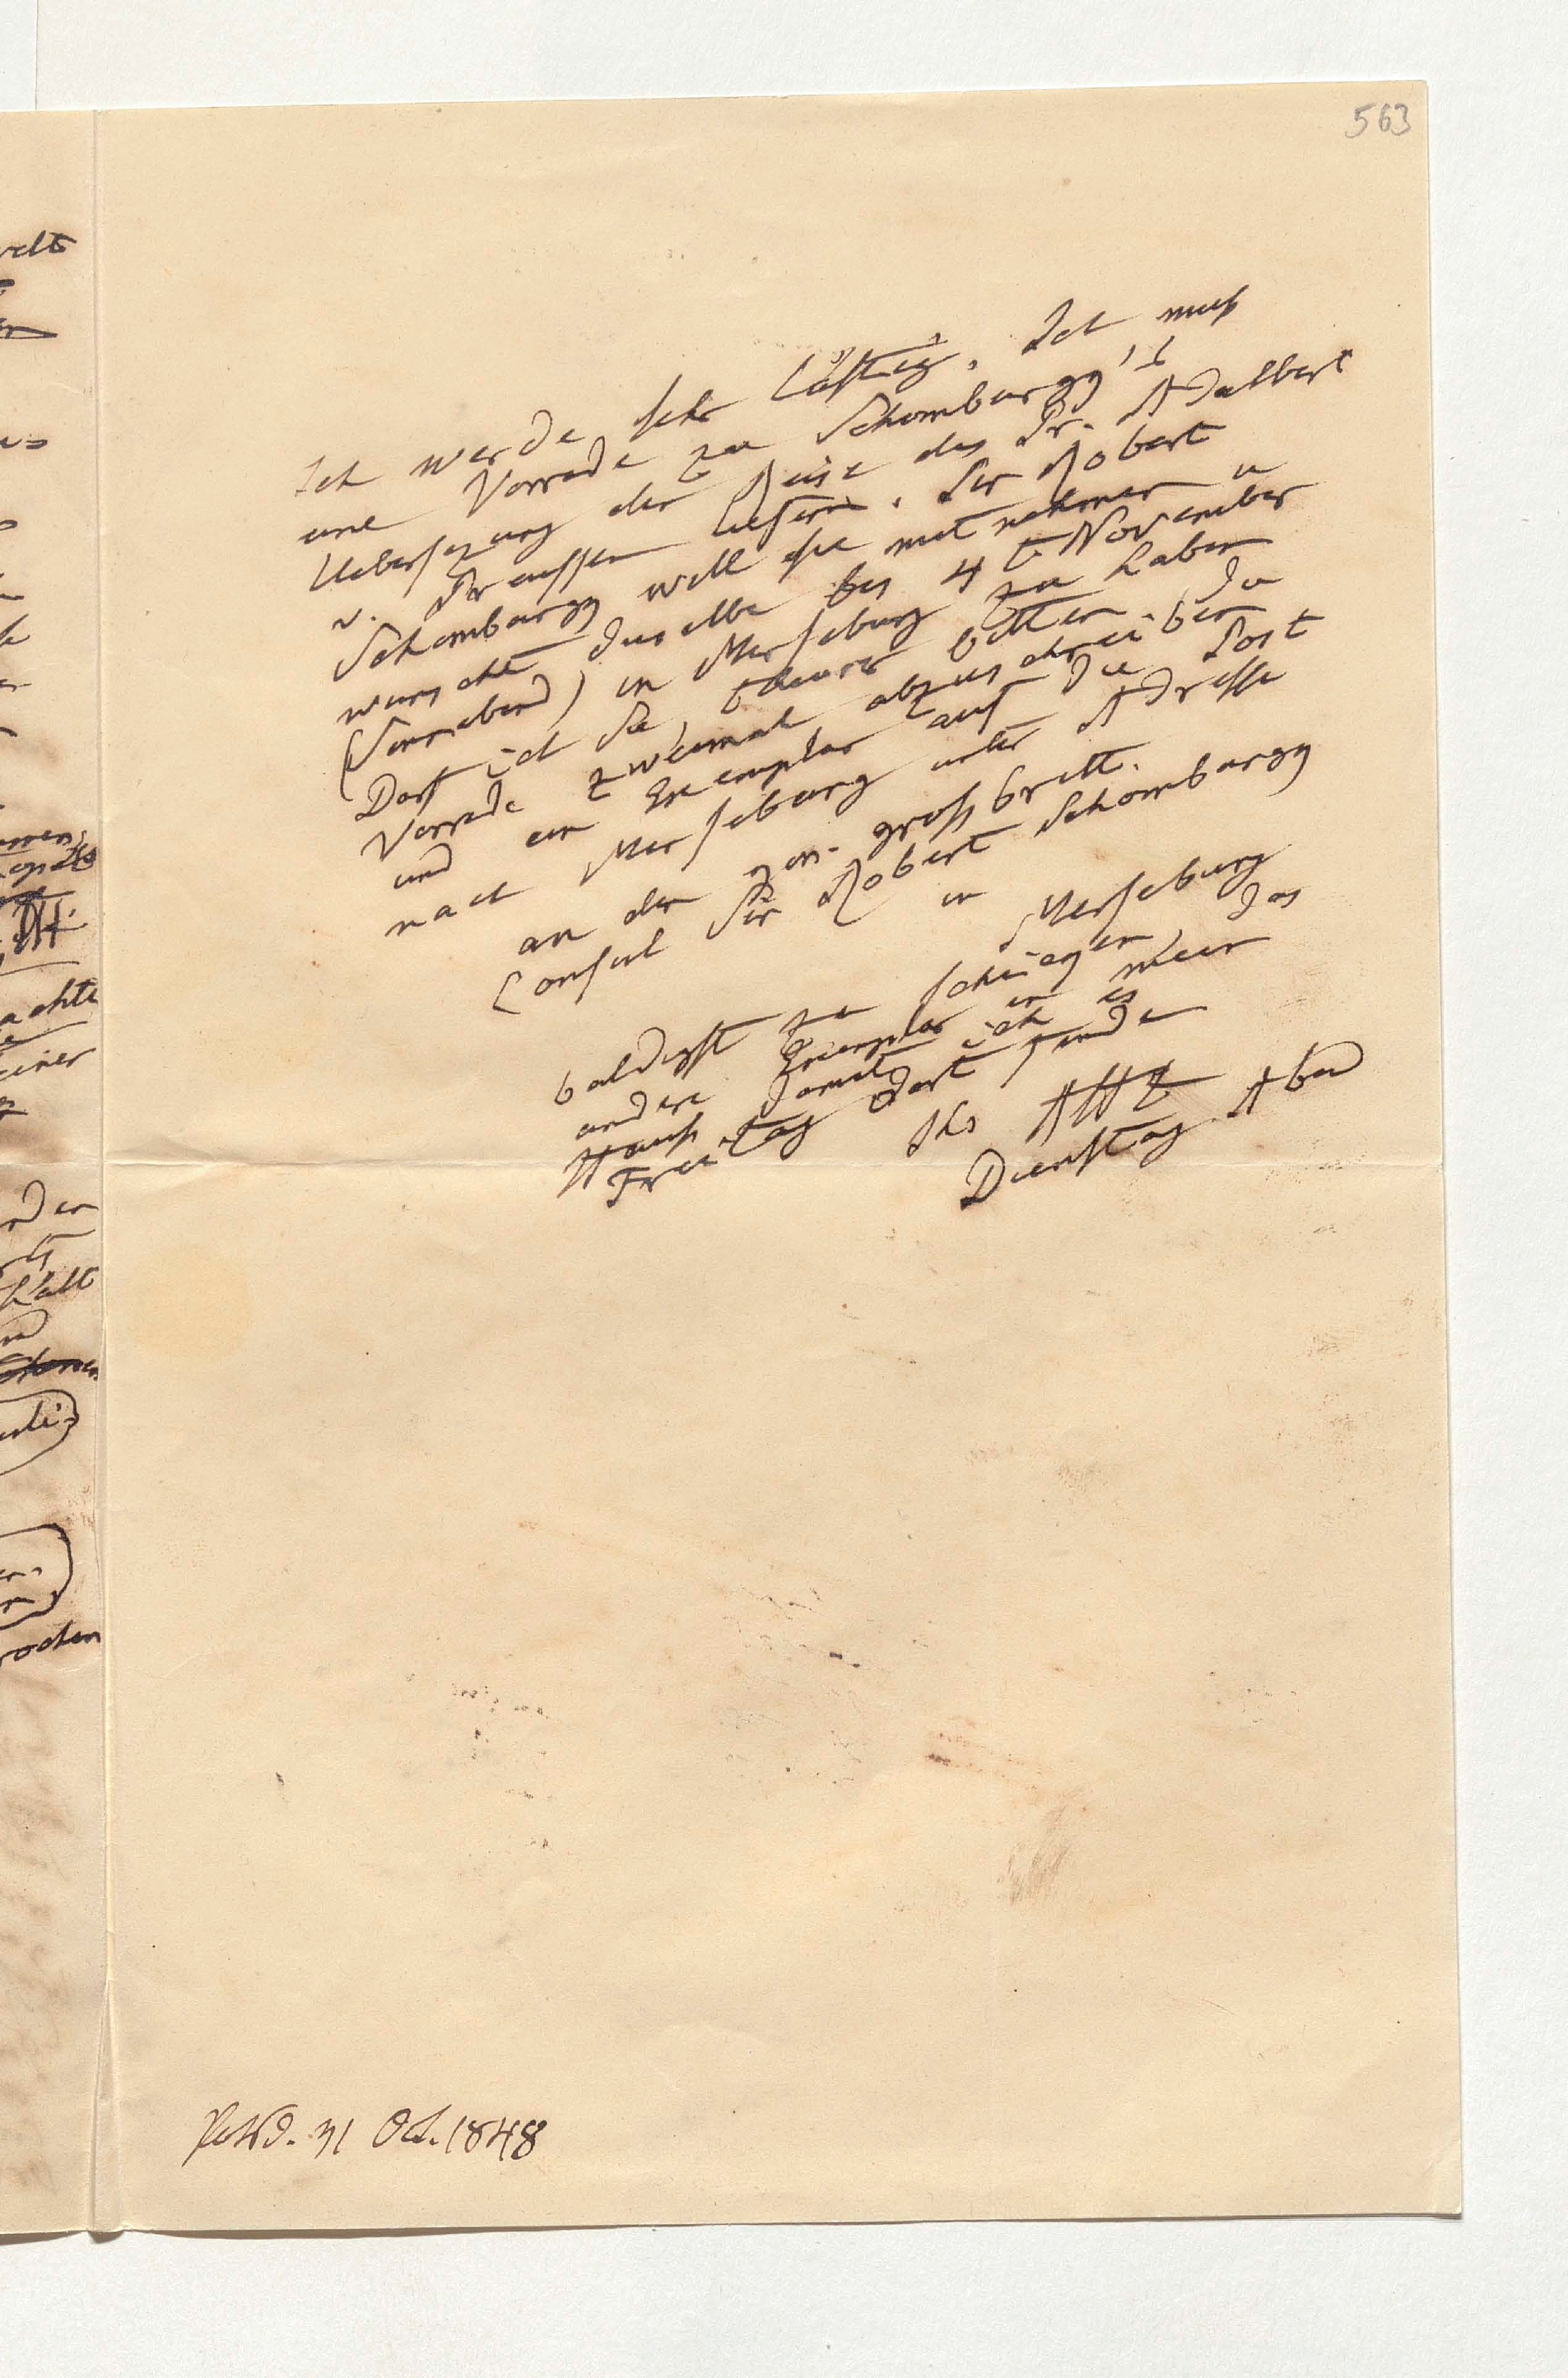 563
Ich werde sehr lästig. Ich muß
eine Vorrede zu Schomburgg's
Uebersezung der Reise des Pr. Adalbert
v. Preussen liefern. Sir Robert
Schomburgg will sie mitnehmen u
wünscht dieselbe bis 4t November
(Sonnabend) in Merseburg zu haben
Darf ich Sie, theurer bitten die
Vorrede zweimal abzuschreiben
und ein Exemplar auf die Post
nach Merseburg unter Adresse
an den gen. großbritt.
Consul Sir Robert Schomburgg
in Merseburg
baldigst zu schikken, das
andere Exemplar in mein
Hauß damit ich es
Freitag dort finde
Ihr AHt
Dienstag Abd
Potsd. 31 Oct. 1848